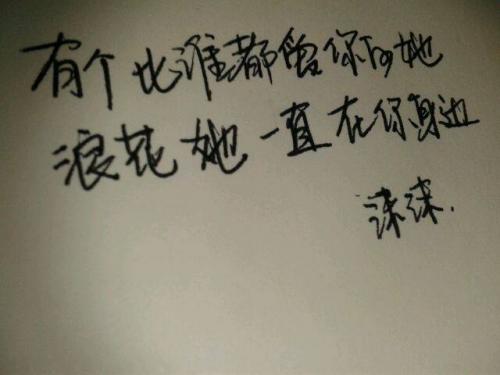 有个比谁都留你的她
浪花她一直在你身边
沫沫.